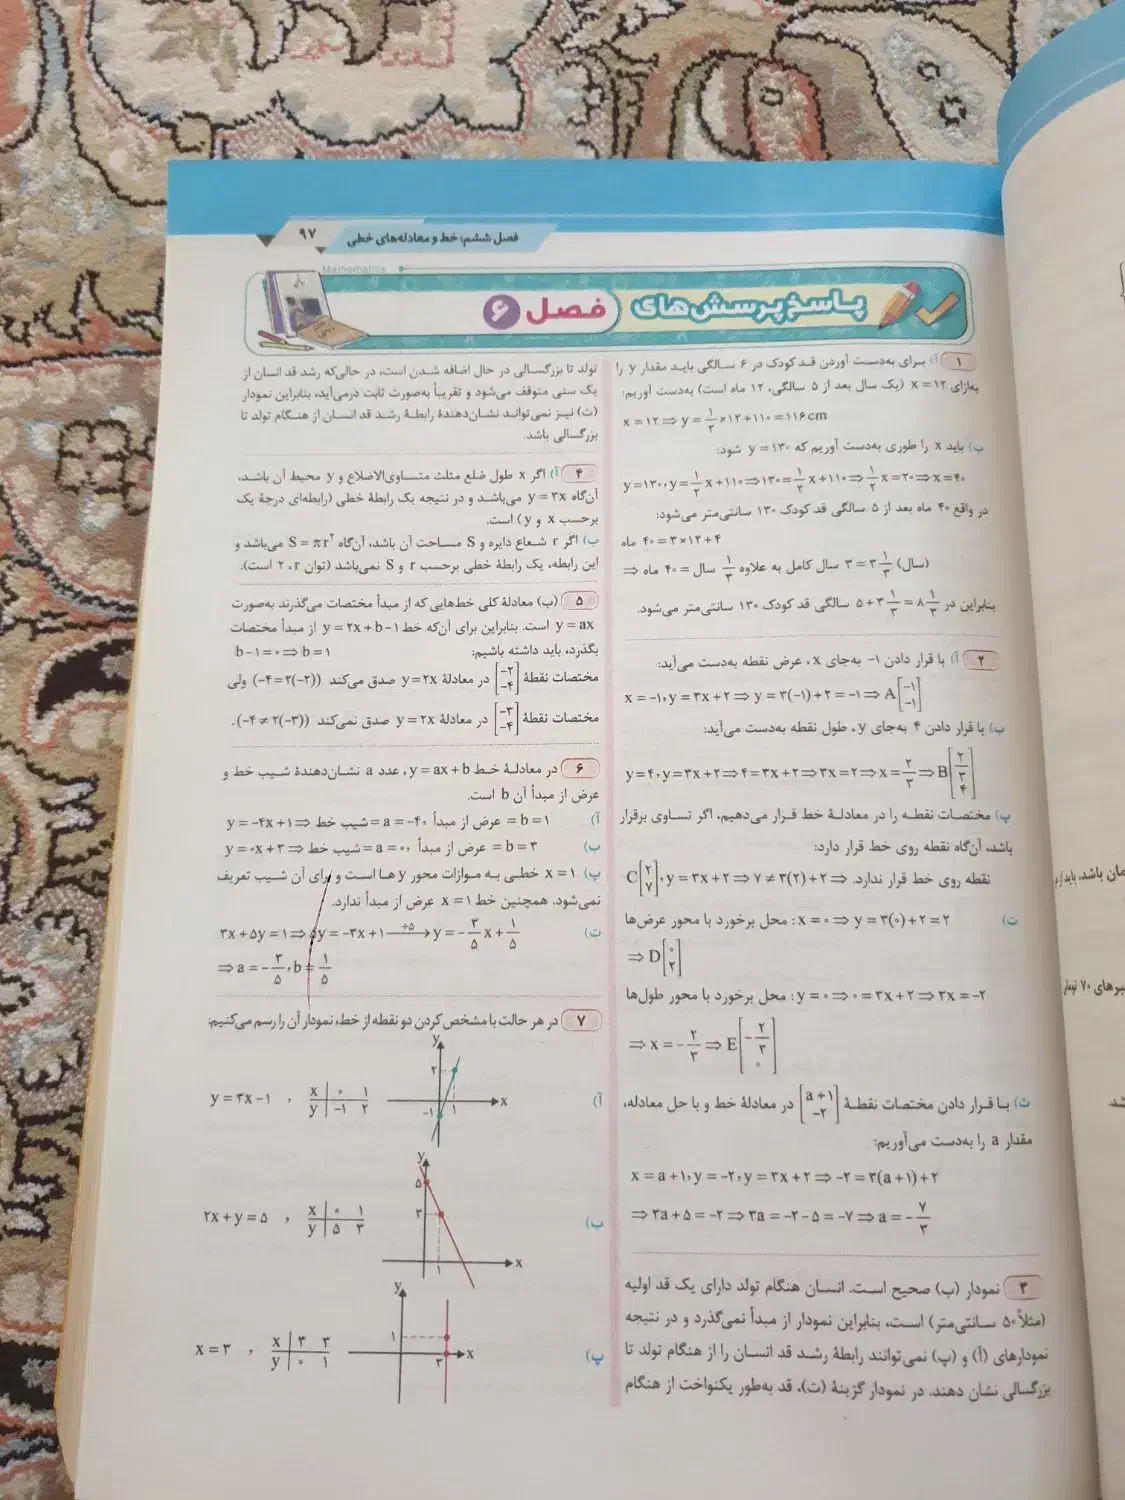 فصل ششم: خط و معادله‌های خطی ۹۷
Mathematics
پاسخ پرسش‌های فصل ۶
۱ آ) برای به‌دست آوردن قد کودک در ۶ سالگی باید مقدار y را
به‌ازای x = ۱۲ (یک سال بعد از ۵ سالگی، ۱۲ ماه است) به‌دست آوریم:
x = ۱۲ ⇒ y = ۱/۲ × ۱۲ + ۱۱۰ = ۱۱۶ cm
ب) باید x را طوری به‌دست آوریم که y = ۱۳۰ شود:
y = ۱۳۰, y = ۱/۲ x + ۱۱۰ ⇒ ۱۳۰ = ۱/۲ x + ۱۱۰ ⇒ ۱/۲ x = ۲۰ ⇒ x = ۴۰
در واقع ۴۰ ماه بعد از ۵ سالگی قد کودک ۱۳۰ سانتی‌متر می‌شود:
ماه ۴۰ = ۳ × ۱۲ + ۴
(سال) ۳ ۱/۳ = ۳ سال کامل به علاوه ۱/۳ سال = ۴۰ ماه ⇒
بنابراین در ۵ + ۳ ۱/۳ = ۸ ۱/۳ سالگی قد کودک ۱۳۰ سانتی‌متر می‌شود.
۲ آ) با قرار دادن ۱- به‌جای x، عرض نقطه به‌دست می‌آید:
x = -۱, y = ۳x + ۲ ⇒ y = ۳(-۱) + ۲ = -۱ ⇒ A[-۱ -۱]
ب) با قرار دادن ۴ به‌جای y، طول نقطه به‌دست می‌آید:
y = ۴, y = ۳x + ۲ ⇒ ۴ = ۳x + ۲ ⇒ ۳x = ۲ ⇒ x = ۲/۳ ⇒ B[۲/۳ ۴]
پ) مختصات نقطه را در معادلهٔ خط قرار می‌دهیم، اگر تساوی برقرار
باشد، آن‌گاه نقطه روی خط قرار دارد:
نقطه روی خط قرار ندارد. C[۲ ۷], y = ۳x + ۲ ⇒ ۷ ≠ ۳(۲) + ۲ ⇒
ت) محل برخورد با محور عرض‌ها: x = ۰ ⇒ y = ۳(۰) + ۲ = ۲
⇒ D[۰ ۲]
محل برخورد با محور طول‌ها: y = ۰ ⇒ ۰ = ۳x + ۲ ⇒ ۳x = -۲
⇒ x = -۲/۳ ⇒ E[-۲/۳ ۰]
ث) با قرار دادن مختصات نقطهٔ [a+۱ -۲] در معادلهٔ خط و با حل معادله،
مقدار a را به‌دست می‌آوریم:
x = a + ۱, y = -۲, y = ۳x + ۲ ⇒ -۲ = ۳(a + ۱) + ۲
⇒ ۳a + ۵ = -۲ ⇒ ۳a = -۲ - ۵ = -۷ ⇒ a = -۷/۳
۳ نمودار (ب) صحیح است. انسان هنگام تولد دارای یک قد اولیه
(مثلاً ۵۰ سانتی‌متر) است، بنابراین نمودار از مبدأ نمی‌گذرد و در نتیجه
نمودارهای (آ) و (پ) نمی‌توانند رابطهٔ رشد قد انسان را از هنگام تولد تا
بزرگسالی نشان دهند. در نمودار گزینهٔ (ت)، قد به‌طور یکنواخت از هنگام
تولد تا بزرگسالی در حال اضافه شدن است، در حالی‌که رشد قد انسان از
یک سنی متوقف می‌شود و تقریباً به‌صورت ثابت درمی‌آید، بنابراین نمودار
(ت) نیز نمی‌تواند نشان‌دهندهٔ رابطهٔ رشد قد انسان از هنگام تولد تا
بزرگسالی باشد.
۴ آ) اگر x طول ضلع مثلث متساوی‌الاضلاع و y محیط آن باشد،
آن‌گاه y = ۳x می‌باشد و در نتیجه یک رابطهٔ خطی (رابطه‌ای درجهٔ یک
برحسب x و y) است.
ب) اگر r شعاع دایره و S مساحت آن باشد، آن‌گاه S = πr² می‌باشد و
این رابطه، یک رابطهٔ خطی برحسب r و S نمی‌باشد (توان r، ۲ است).
۵ (ب) معادلهٔ کلی خط‌هایی که از مبدأ مختصات می‌گذرند به‌صورت
y = ax است. بنابراین برای آن‌که خط y = ۲x + b - ۱ از مبدأ مختصات
بگذرد، باید داشته باشیم: b - ۱ = ۰ ⇒ b = ۱
مختصات نقطهٔ [-۲ -۴] در معادلهٔ y = ۲x صدق می‌کند (-۴ = ۲(-۲)) ولی
مختصات نقطهٔ [-۳ -۴] در معادلهٔ y = ۲x صدق نمی‌کند (-۴ ≠ ۲(-۳)).
۶ در معادلهٔ خط y = ax + b، عدد a نشان‌دهندهٔ شیب خط و
عرض از مبدأ آن b است.
آ) y = -۴x + ۱ ⇒ شیب خط = a = -۴, عرض از مبدأ = b = ۱
ب) y = ۰x + ۳ ⇒ شیب خط = a = ۰, عرض از مبدأ = b = ۳
پ) x = ۱ خطی به موازات محور yها است و برای آن شیب تعریف
نمی‌شود. همچنین خط x = ۱ عرض از مبدأ ندارد.
ت) ۳x + ۵y = ۱ ⇒ ۵y = -۳x + ۱ ÷۵→ y = -۳/۵ x + ۱/۵
⇒ a = -۳/۵, b = ۱/۵
۷ در هر حالت با مشخص کردن دو نقطه از خط، نمودار آن را رسم می‌کنیم:
آ) y = ۳x - ۱ , x ۰ ۱
y -۱ ۲
y ۲ -۱ ۱ x
ب) ۲x + y = ۵ , x ۰ ۱
y ۵ ۳
y ۵ ۳ ۱ x
پ) x = ۳ , x ۳ ۳
y ۰ ۱
y ۱ ۳ x